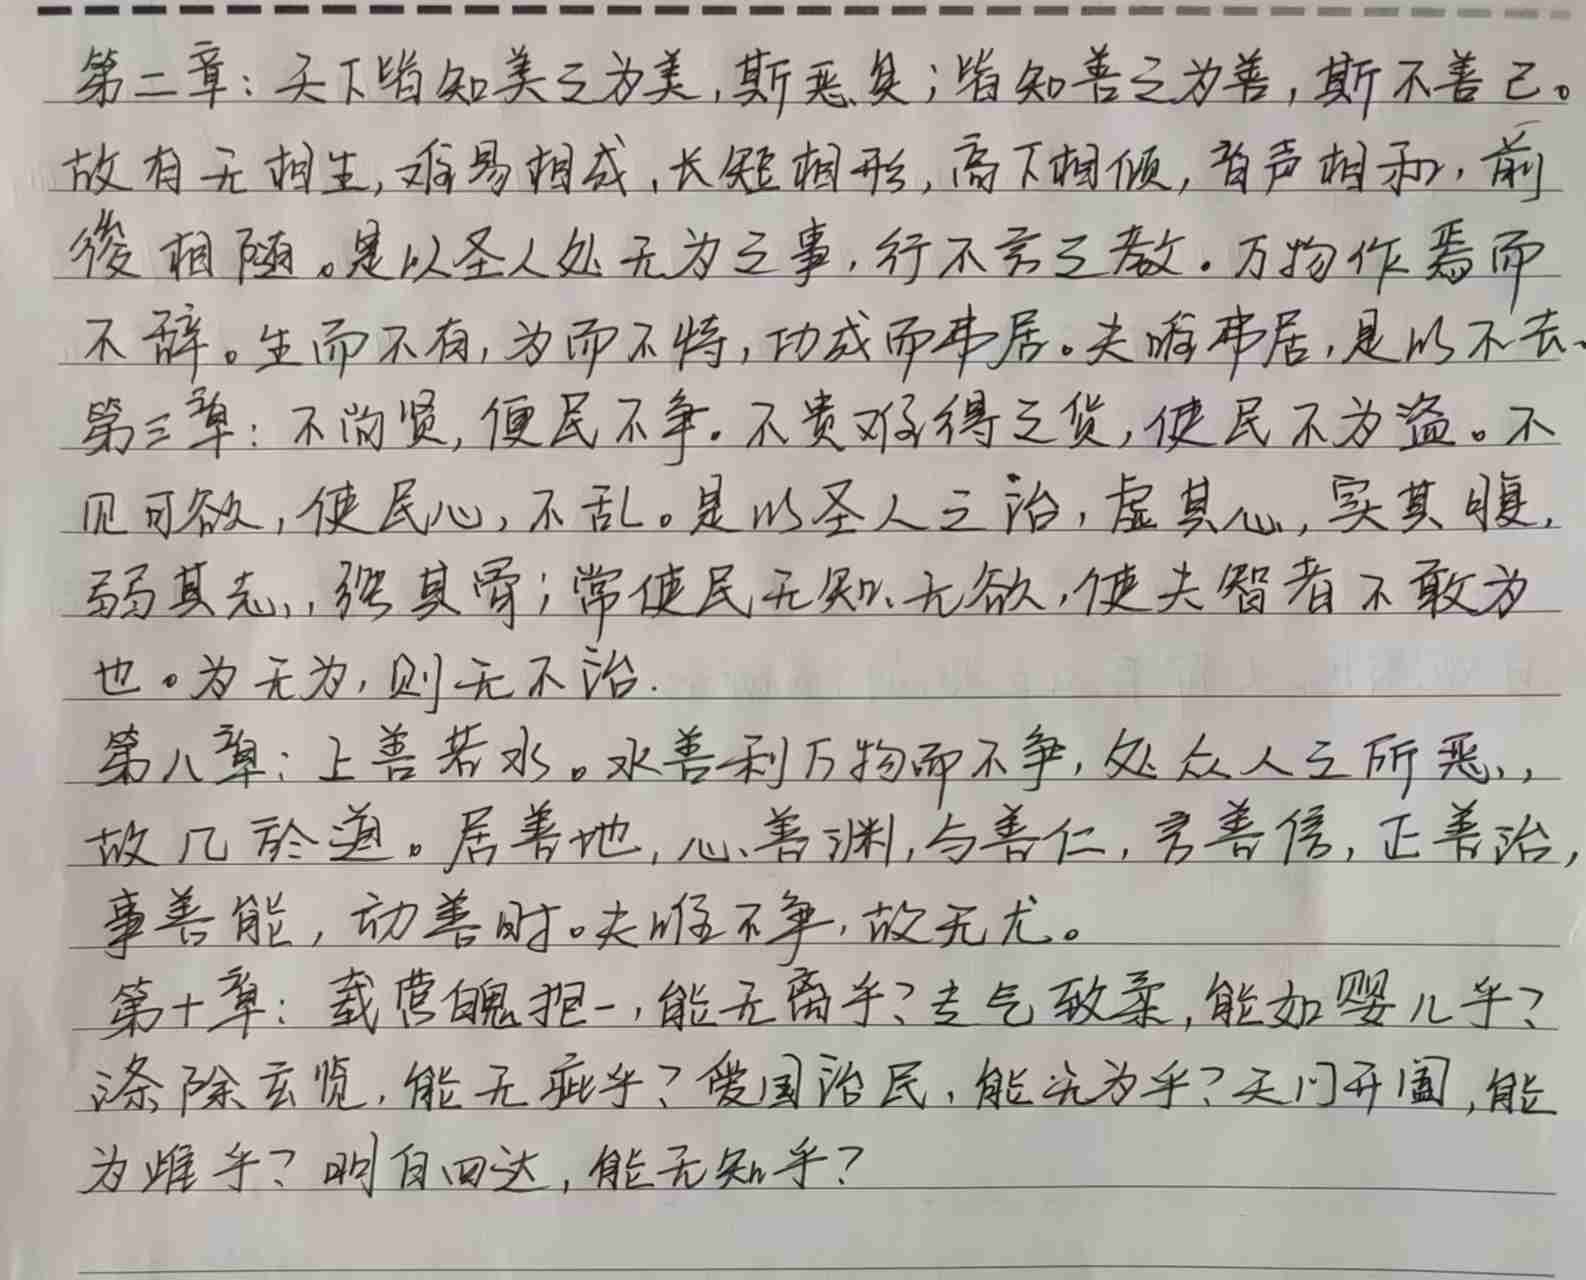 第二章：天下皆知美之为美，斯恶矣；皆知善之为善，斯不善已。
故有无相生，难易相成，长短相形，高下相倾，音声相和，前
後相随。是以圣人处无为之事，行不言之教。万物作焉而
不辞。生而不有，为而不恃，功成而弗居。夫唯弗居，是以不去。
第三章：不尚贤，使民不争。不贵难得之货，使民不为盗。不
见可欲，使民心，不乱。是以圣人之治，虚其心，实其腹，
弱其志，强其骨；常使民无知、无欲，使夫智者不敢为
也。为无为，则无不治.
第八章：上善若水。水善利万物而不争，处众人之所恶，
故几於道。居善地，心善渊，与善仁，言善信，正善治，
事善能，动善时。夫唯不争，故无尤。
第十章：载营魄抱一，能无离乎？专气致柔，能如婴儿乎？
涤除玄览，能无疵乎？爱国治民，能无为乎？天门开阖，能
为雌乎？明白四达，能无知乎？